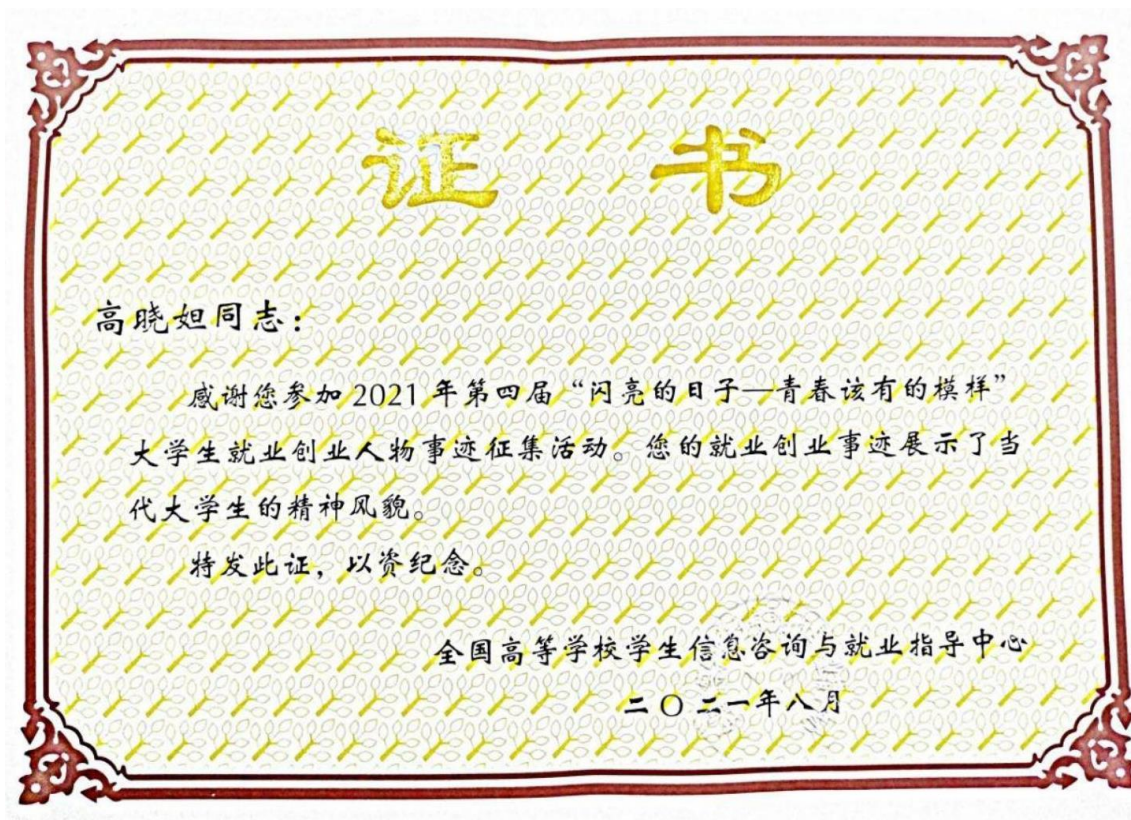 证 书
高晓妲同志：
感谢您参加 2021 年第四届“闪亮的日子—青春该有的模样”
大学生就业创业人物事迹征集活动。您的就业创业事迹展示了当
代大学生的精神风貌。
特发此证，以资纪念。
全国高等学校学生信息咨询与就业指导中心
二〇二一年八月